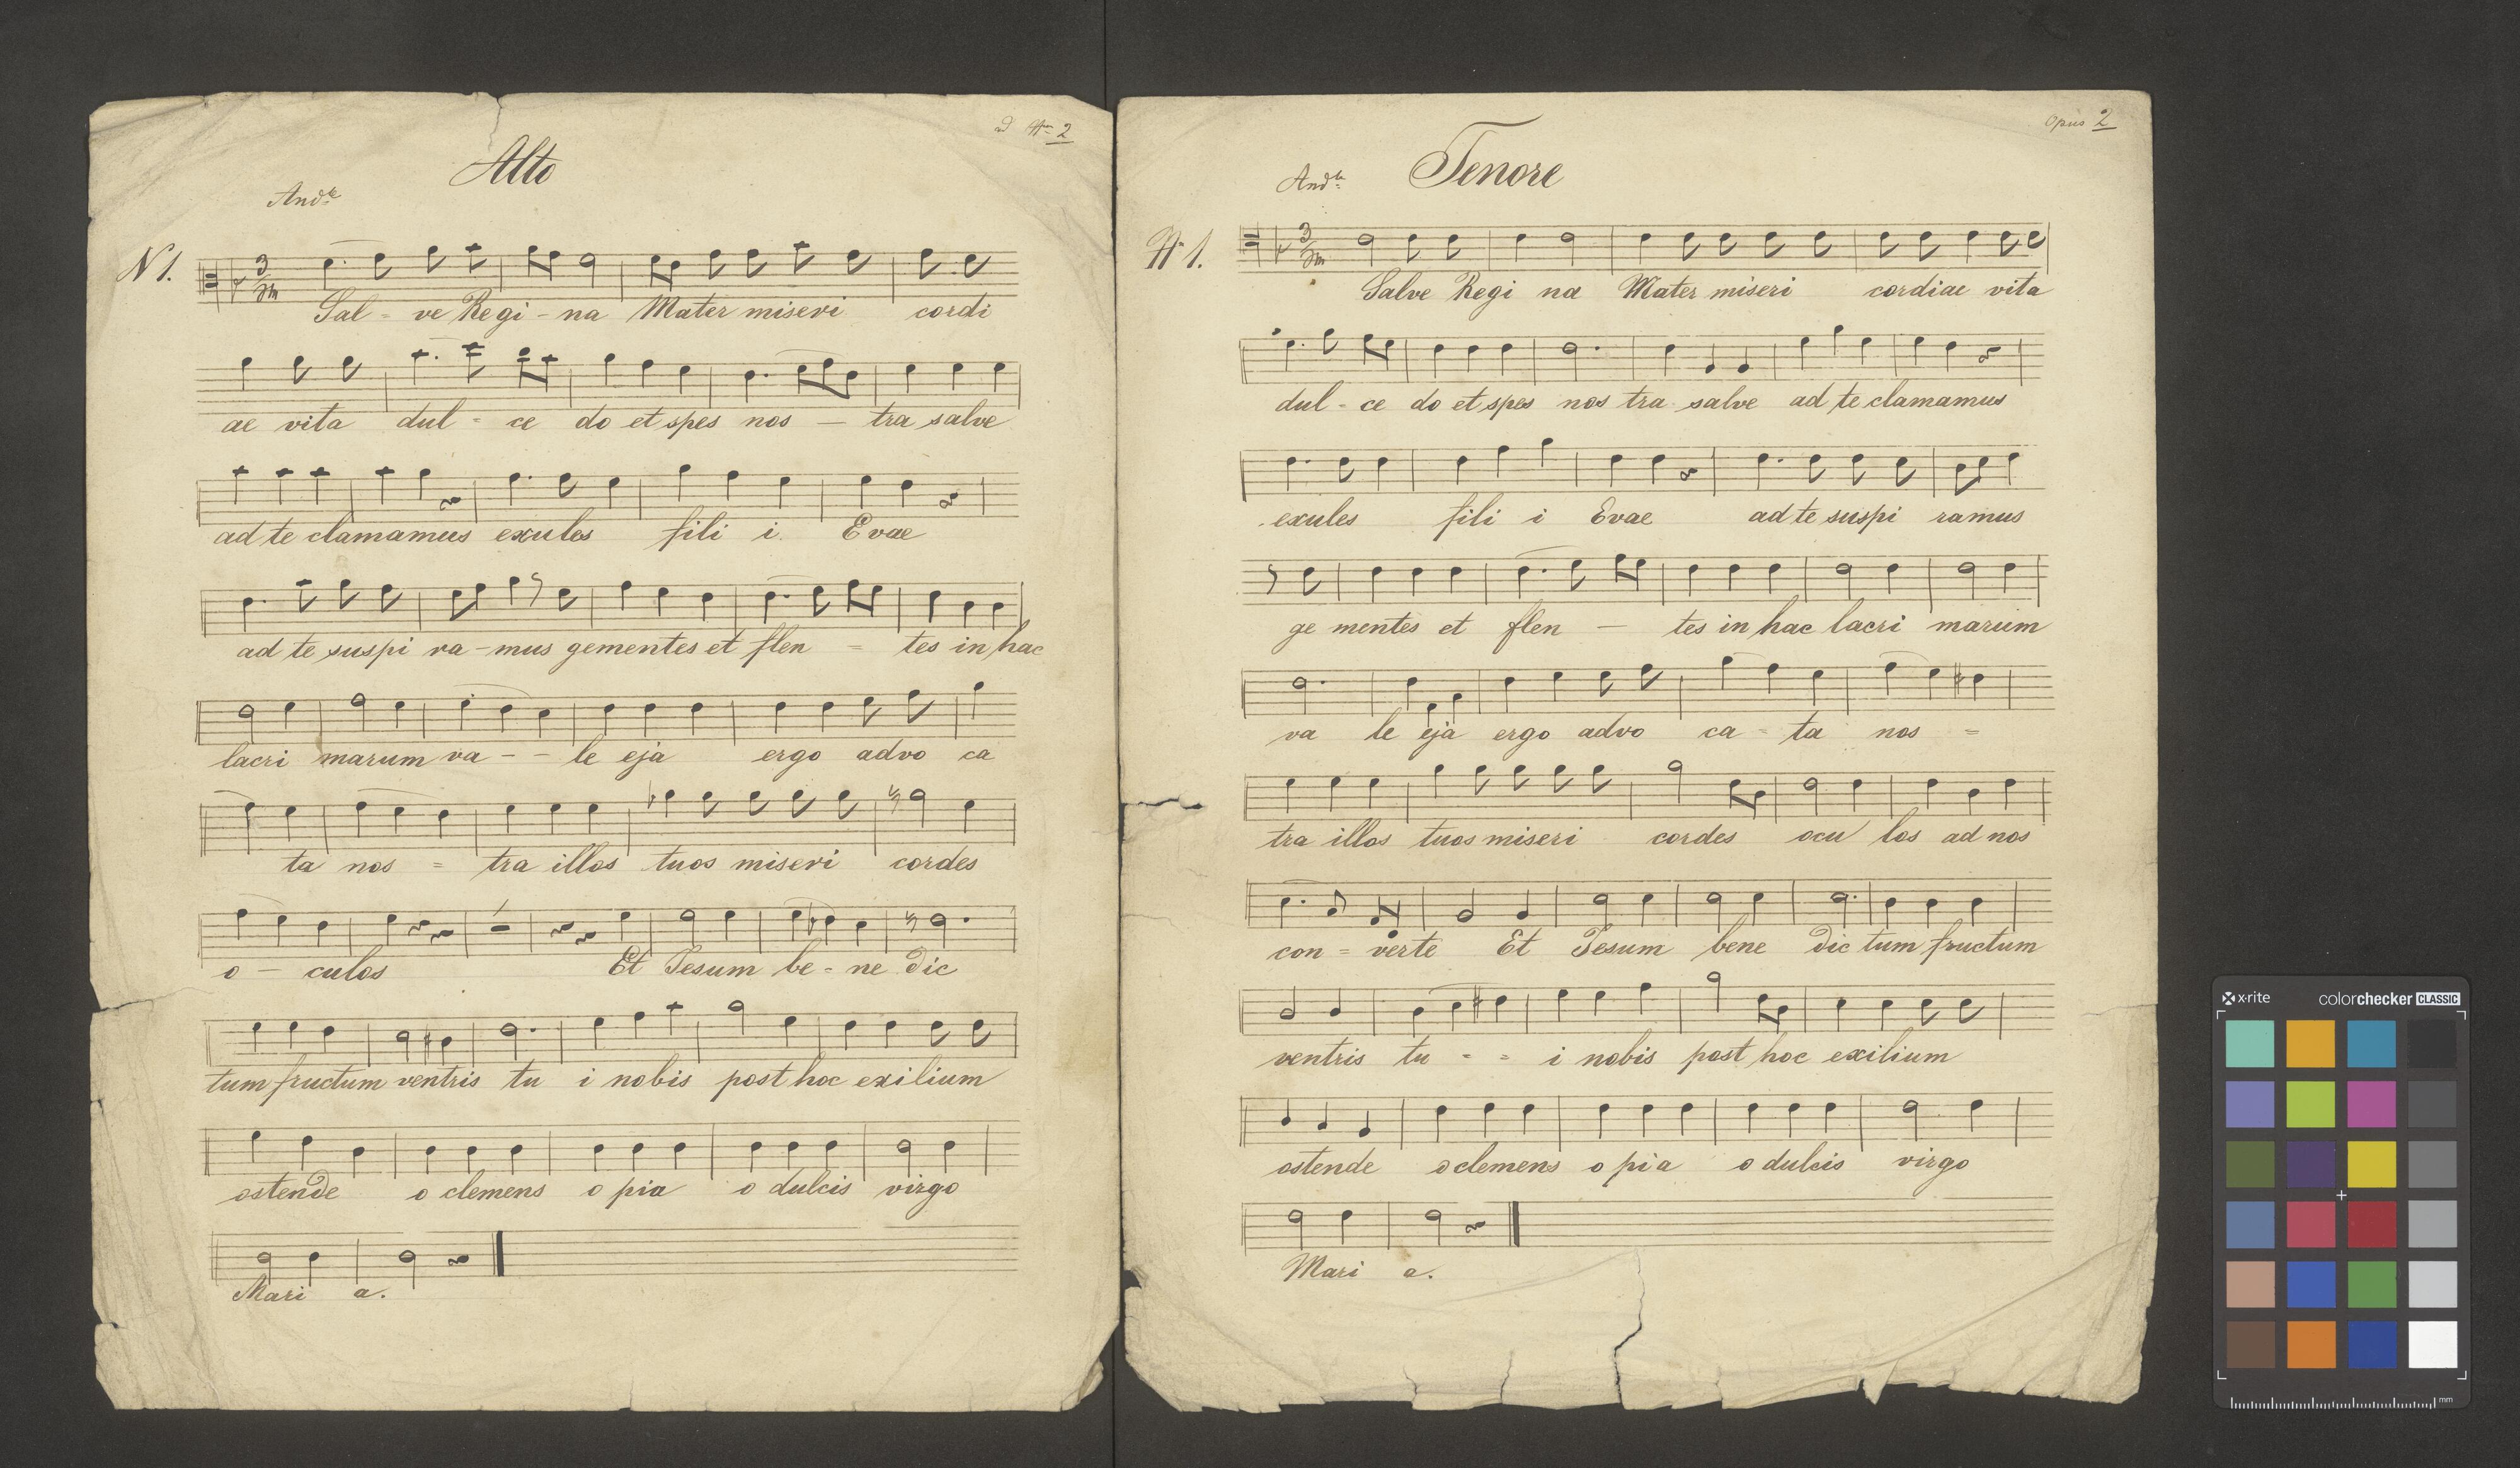 ad No 2
Alto
Andte
N 1.
3
Sal - ve Regi - na Mater miseri cordi
ae vita dul - ce do et spes nos - tra salve
ad te clamamus exules fili i Evae
ad te suspi ra - mus gementes et flen = tes in hac
lacri marum va - - le eja ergo advo ca
ta nos = tra illos tuos miseri cordes
o - culos Et Jesum be = ne dic
tum fructum ventris tu i nobis post hoc exilium
ostende o clemens o pia o dulcis virgo
Mari a.
Opus 2
Tenore
Andte
No 1.
3
Salve Regi na Mater miseri cordiae vita
dul - ce do et spes nos tra salve ad te clamamus
exules fili i Evae ad te suspi ramus
ge mentes et flen - tes in hac lacri marum
va le eja ergo advo ca - ta nos =
tra illos tuos miseri cordes ocu los ad nos
con = verte Et Jesum bene dic tum fructum
ventris tu = = i nobis post hoc exilium
ostende o clemens o pia o dulcis virgo
Mari a.
x-rite colorchecker CLASSIC
mm